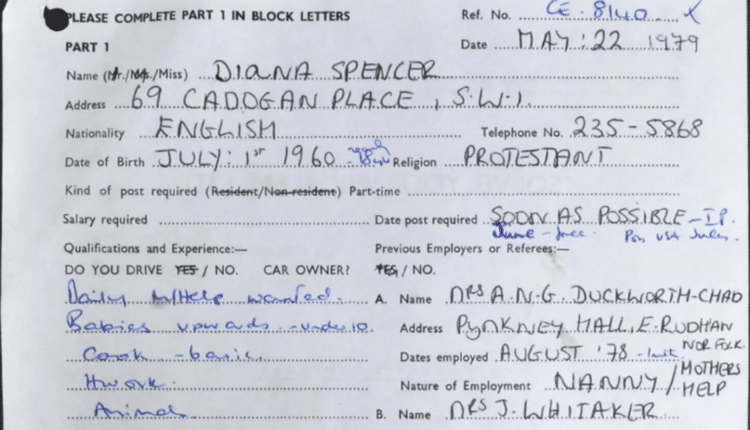 PLEASE COMPLETE PART 1 IN BLOCK LETTERS Ref. No. CE-8140
PART 1 Date MAY:22 1979
Name (Mr./Mrs./Miss) DIANA SPENCER
Address 69 CADOGAN PLACE, S.W.1.
Nationality ENGLISH Telephone No. 235-5868
Date of Birth JULY: 1ST 1960 Religion PROTESTANT
Kind of post required (Resident/Non-resident) Part-time
Salary required Date post required SOON AS POSSIBLE
June - free. Pos. USA July.
Qualifications and Experience:— Previous Employers or Referees:—
DO YOU DRIVE YES / NO. CAR OWNER? YES / NO.
Daily M/Help wanted. A. Name MRS A.N.G. DUCKWORTH-CHAD
Babies upwards - under 10. Address PYNKNEY HALL, E. RUDHAN
NORFOLK
Cook - basic. Dates employed AUGUST '78
Hwork. Nature of Employment NANNY / MOTHERS HELP
Animals B. Name MRS J. WHITAKER